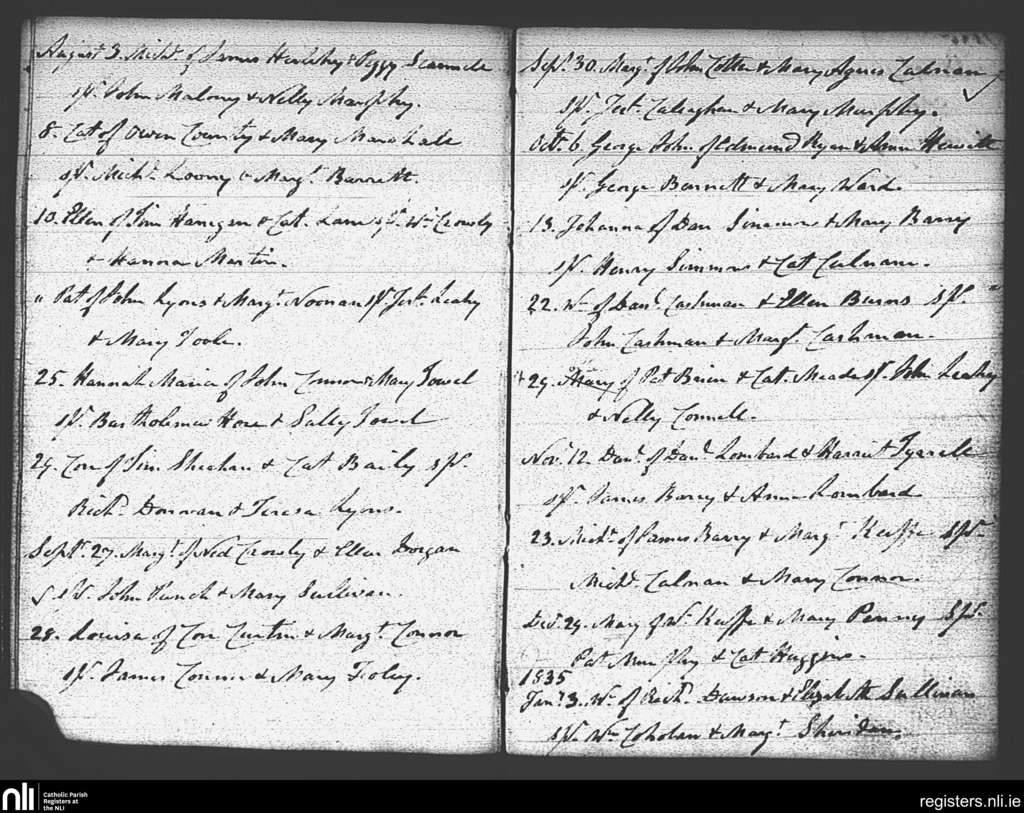 August 3. Michl. of James Hurlehy & Peggy Scannell
sps. John Maloney & Nelly Murphy.
8. Cat of Owen County & Mary Marshall
sps. Michl. Looney & Margt. Barrett.
10. Ellen of Tim Hanegan & Cat. Lane sps. Wm. Crowly
& Hanora Martin.
" Pat of John Lyons & Margt. Noonan sps. Jerh. Leahy
& Mary Toole.
25. Hannah Maria of John Connor & Mary Jowel
sps. Bartholomew Hore & Sally Jowel
29. Con of Jim Sheahan & Cat Baily sps.
Richd. Donovan & Teresa Lyons.
Septr. 27. Margt. of Ned Crowly & Ellen Dorgan
sps. John Punch & Mary Sullivan.
28. Louisa of Con Curtin & Margt. Connor
sps. James Connor & Mary Fooley.
Sept. 30. Margt. of John Cotter & Mary Agnes Calnan
sps. Jert. Calaghan & Mary Murphy.
Octr. 6. George John of Edmund Ryan & Anne Hewitt
sps. George Barnett & Mary Ward.
13. Johanna of Dan Simmons & Mary Barry
sps. Henry Simmons & Cat Calnan.
22. Wm of Danl. Cashman & Ellen Burns sps.
John Cashman & Margt. Cashman.
29. Mary of Pat Brien & Cat. Meade sps. John Leahy
& Nelly Connell.
Novr. 12 Danl. of Danl. Lombard & Harriet Tyrrell
sps. James Barry & Anne Lombard
23. Michl. of James Barry & Margt. Keeffe sps.
Michl. Calnan & Mary Connor.
Decr. 29. Mary of Wm. Keeffe & Mary Penny sps.
Pat Murphy & Cat Huggins.
1835
Jany. 3. Wm. of Richd. Dawson & Elizabeth Sullivan
sps. Wm Coholan & Margt. Sheridan.
nli
Catholic Parish
Registers at
the NLI
registers.nli.ie